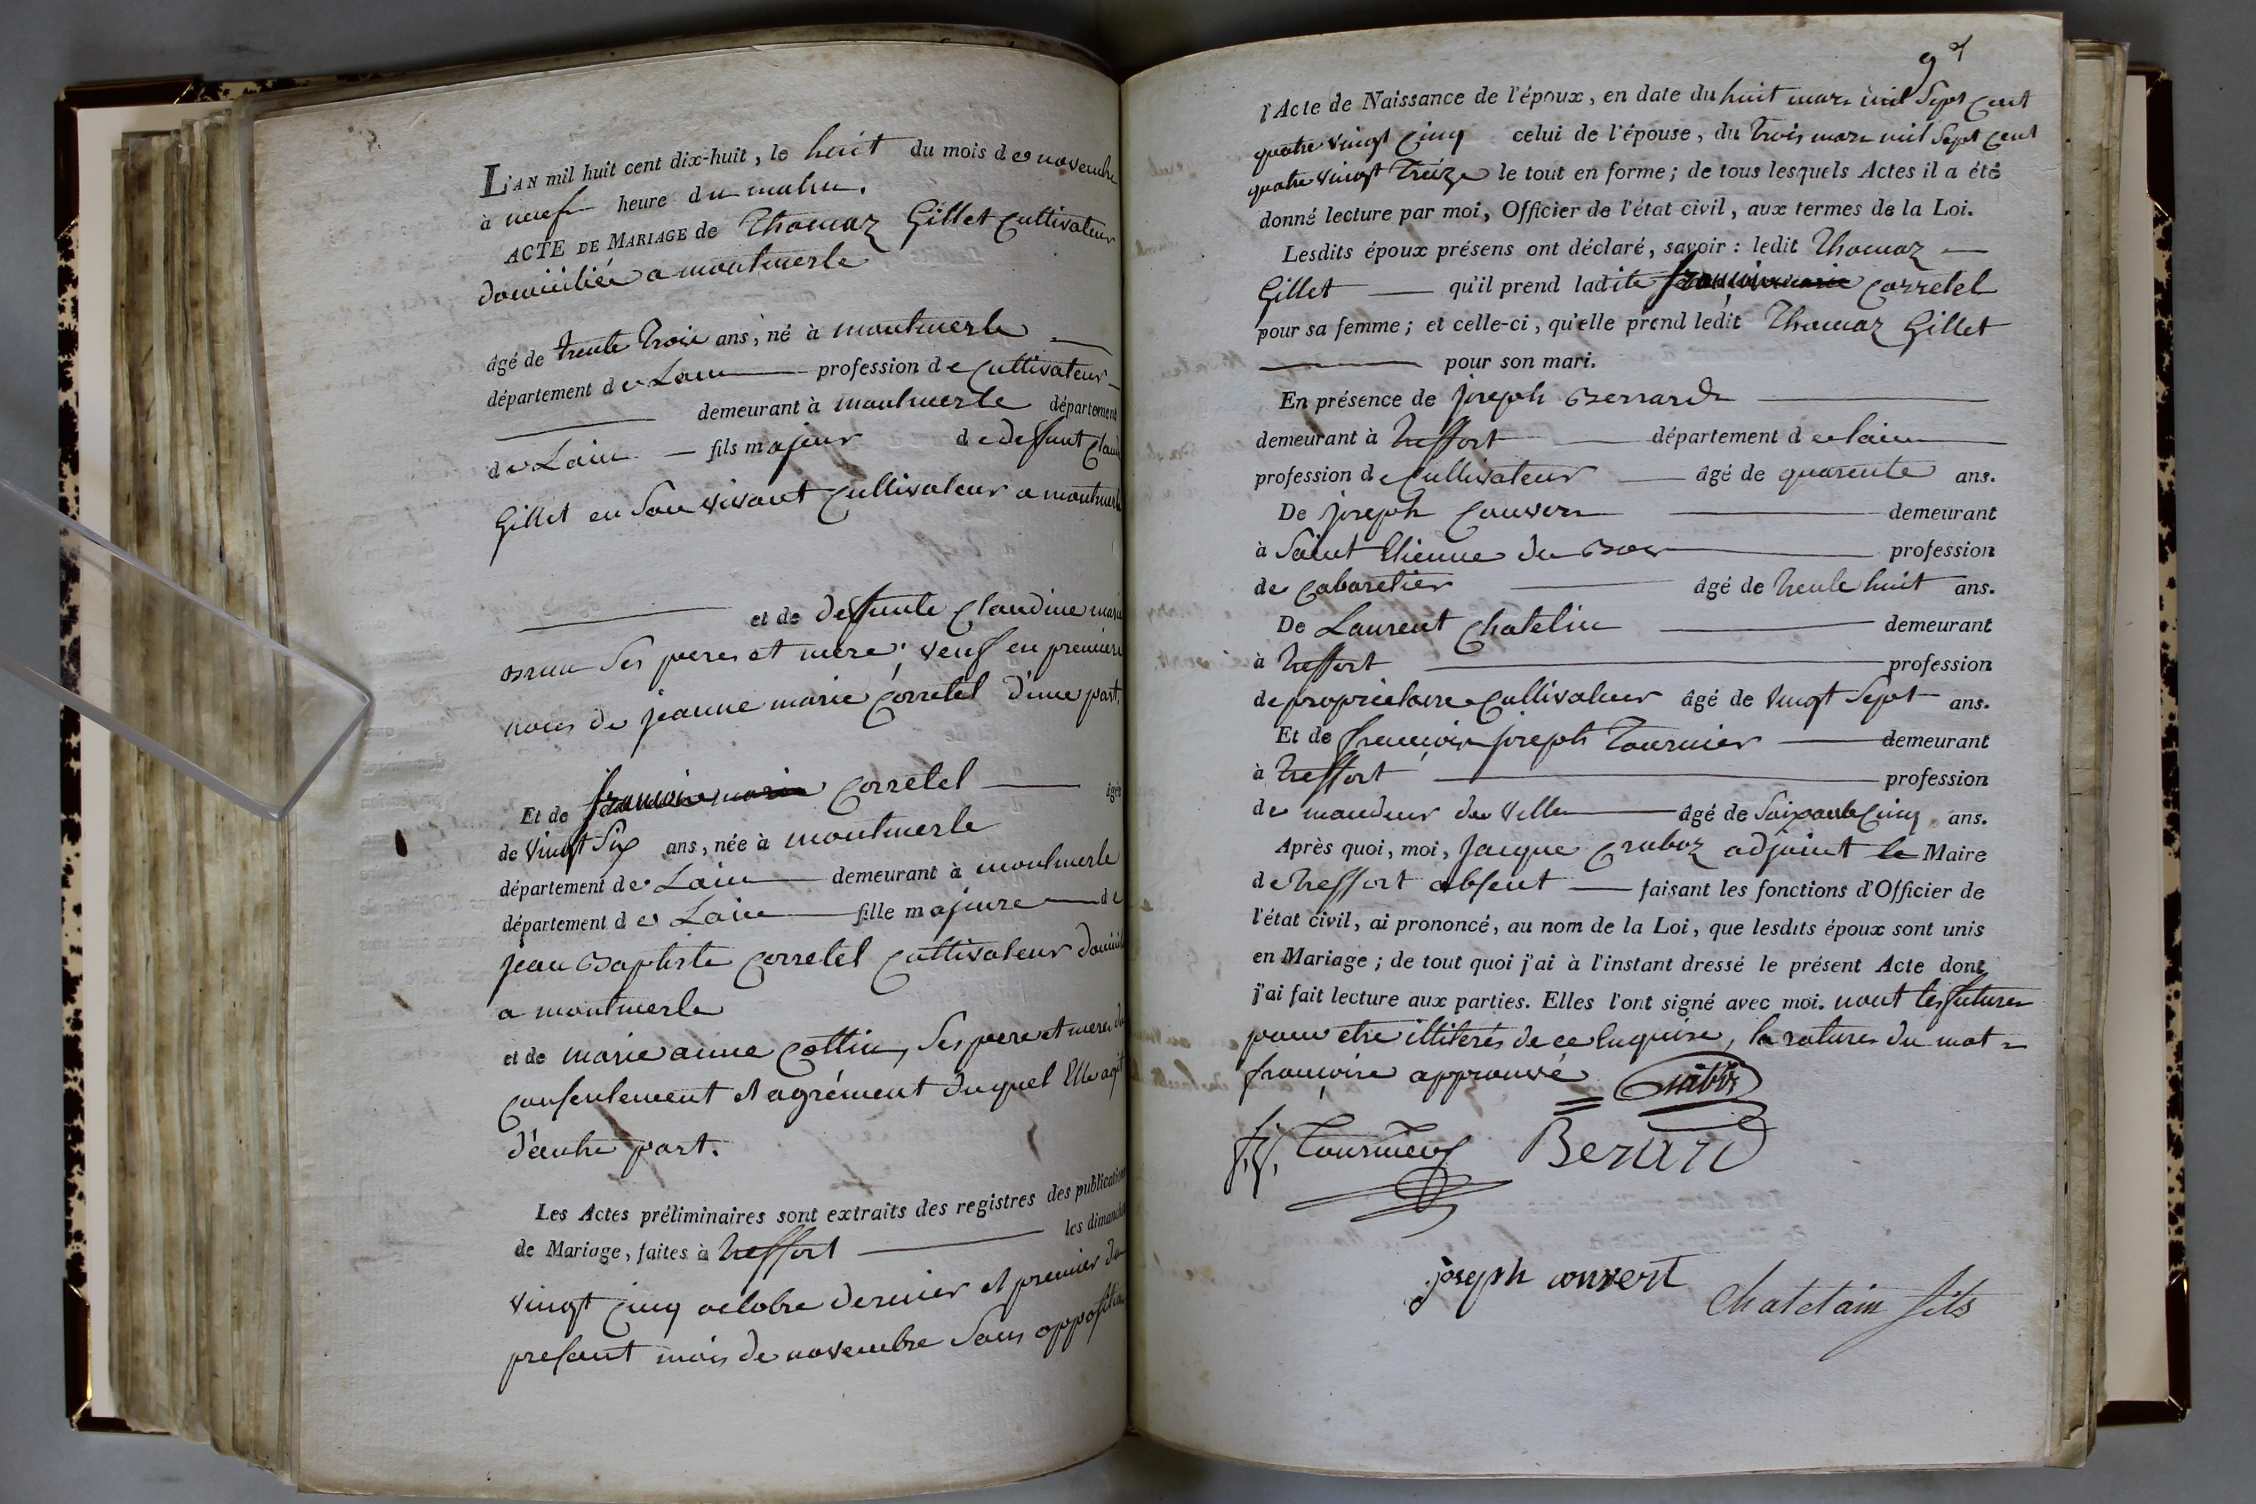 L'AN mil huit cent dix-huit, le huit du mois de novembre
à neuf heure du matin.
ACTE DE MARIAGE de Thomaz Gillet Cultivateur
domiciliée a montmerle
âgé de trente trois ans, né à montmerle
département de Lain profession de Cultivateur
demeurant à montmerle département
de Lain fils majeur de deffunt Claude
Gillet en son vivant Cultivateur a montmerle
et de deffunte Claudine marie
Brun ses peres et mere. veuf en premiere
noces de jeanne marie Corretel d'une part.
Et de françoise marie Corretel âgée
de vingt six ans, née à montmerle
département de Lain demeurant à montmerle
département de Lain fille majeure de
jean Baptiste Corretel Cultivateur domicilié
a montmerle
et de marie anne Cottin, ses pere et mere du
consentement et agrément duquel Elle agit
d'autre part.
Les Actes préliminaires sont extraits des registres des publications
de Mariage, faites à treffort les dimanches
vingt cinq octobre dernier et premier du
present mois de novembre sans opposition
9
l'Acte de Naissance de l'époux, en date du huit mars mil sept cent
quatre vingt cinq celui de l'épouse, du trois mars mil sept cent
quatre vingt treize le tout en forme; de tous lesquels Actes il a été
donné lecture par moi, Officier de l'état civil, aux termes de la Loi.
Lesdits époux présens ont déclaré, savoir: ledit Thomaz
Gillet qu'il prend ladite françoise marie Corretel
pour sa femme; et celle-ci, qu'elle prend ledit Thomaz Gillet
pour son mari.
En présence de joseph Berrard
demeurant à treffort département de Lain
profession de Cultivateur âgé de quarente ans.
De joseph Convert demeurant
à Saint Etienne du Bois profession
de Cabaretier âgé de trente huit ans.
De Laurent Chatelin demeurant
à treffort profession
de proprietaire Cultivateur âgé de vingt sept ans.
Et de françois joseph Tournier demeurant
à treffort profession
de mandeur de ville âgé de soixante cinq ans.
Après quoi, moi, Jacque Cruboz adjoint le Maire
de treffort absent faisant les fonctions d'Officier de
l'état civil, ai prononcé, au nom de la Loi, que lesdits époux sont unis
en Mariage; de tout quoi j'ai à l'instant dressé le présent Acte dont
j'ai fait lecture aux parties. Elles l'ont signé avec moi. nont les futures
pour etre illiterés de ce enquise, la rature du mot
françoise approuvé
f. j. Tournier Berard
joseph convert
Chatelain fils